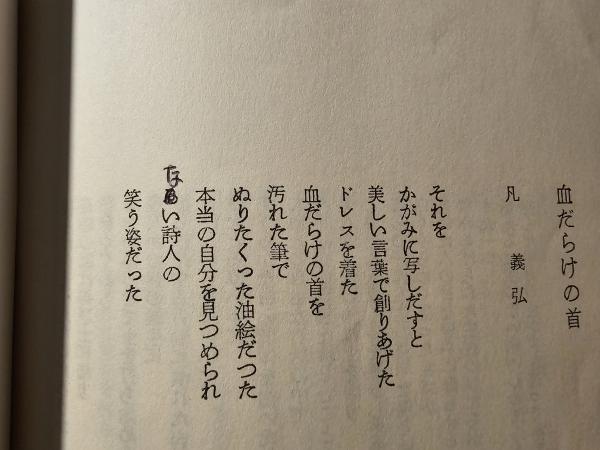 血だらけの首
凡 義弘
それを
かがみに写しだすと
美しい言葉で創りあげた
ドレスを着た
血だらけの首を
汚れた筆で
ぬりたくった油絵だつた
本当の自分を見つめられ
ない詩人の
笑う姿だった